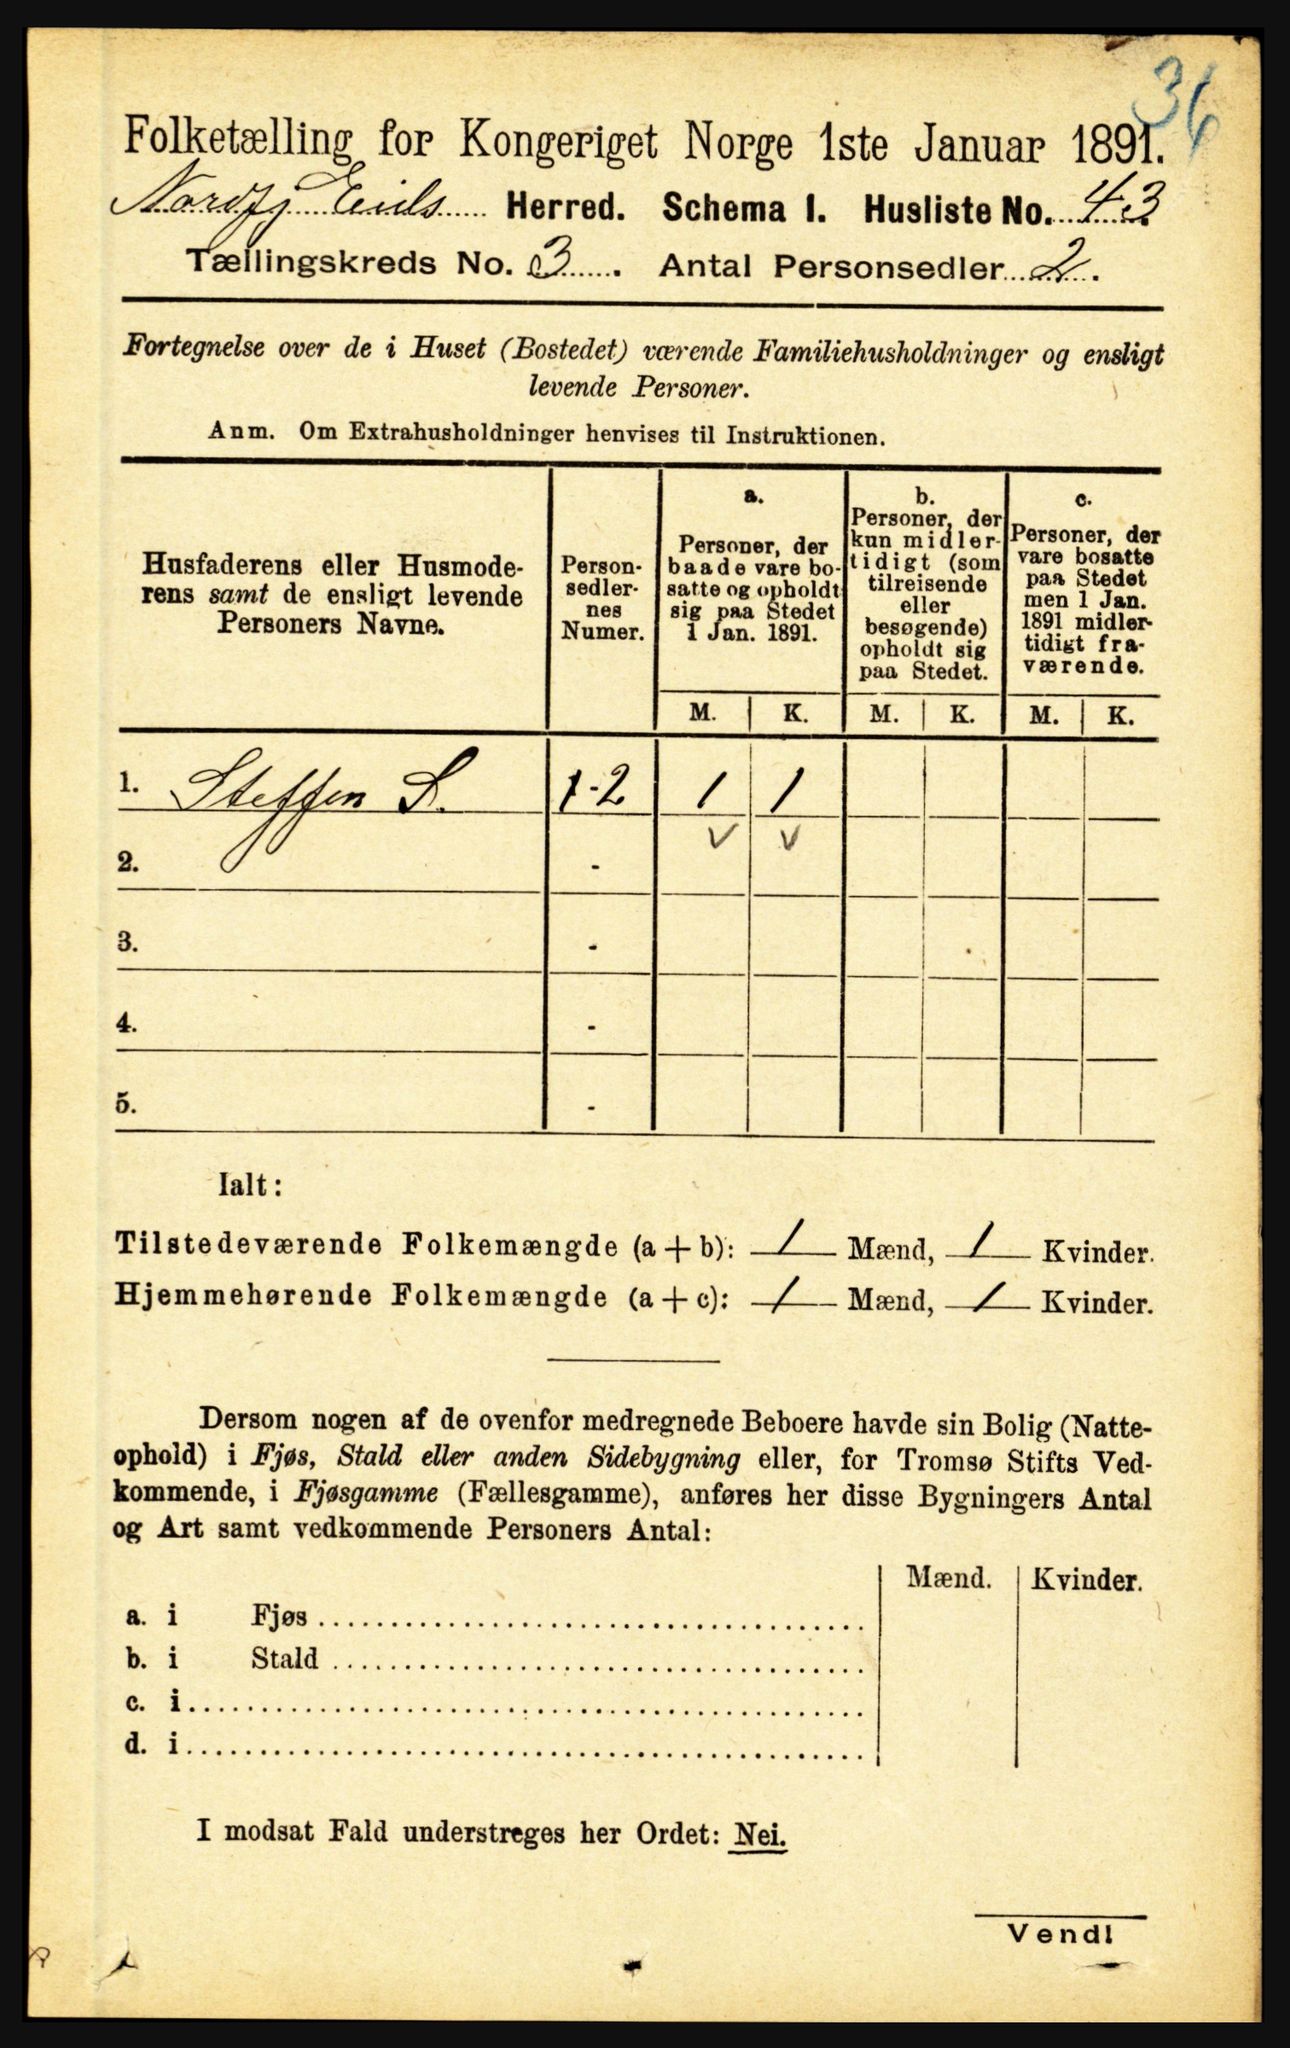 36
Folketælling for Kongeriget Norge 1ste Januar 1891.
Nordfj Eids Herred. Schema I. Husliste No. 43
Tællingskreds No. 3. Antal Personsedler 2.
Fortegnelse over de i Huset (Bostedet) værende Familiehusholdninger og ensligt
levende Personer.
Anm. Om Extrahusholdninger henvises til Instruktionen.
Husfaderens eller Husmode-
rens samt de ensligt levende
Personers Navne.
Person-
sedler-
nes
Numer.
a.
Personer, der
baade vare bo-
satte og opholdt
sig paa Stedet
1 Jan. 1891.
b.
Personer, der
kun midler-
tidigt (som
tilreisende
eller
besøgende)
opholdt sig
paa Stedet.
c.
Personer, der
vare bosatte
paa Stedet
men 1 Jan.
1891 midler-
tidigt fra-
værende.
M. K. M. K. M. K.
1. Steffen S. 1-2 1 1
2. - v v
3. -
4. -
5. -
Ialt:
Tilstedeværende Folkemængde (a + b): 1 Mænd, 1 Kvinder.
Hjemmehørende Folkemængde (a + c): 1 Mænd, 1 Kvinder.
Dersom nogen af de ovenfor medregnede Beboere havde sin Bolig (Natte-
ophold) i Fjøs, Stald eller anden Sidebygning eller, for Tromsø Stifts Ved-
kommende, i Fjøsgamme (Fællesgamme), anføres her disse Bygningers Antal
og Art samt vedkommende Personers Antal:
Mænd. Kvinder.
a. i Fjøs
b. i Stald
c. i
d. i
I modsat Fald understreges her Ordet: Nei.
Vend!